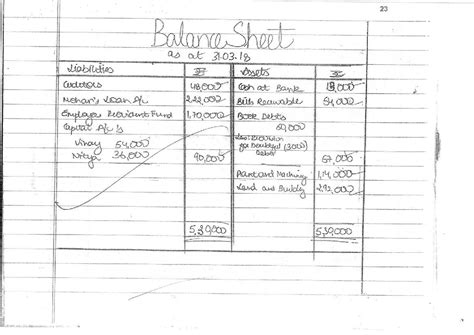 23
Balance Sheet
as at 31.03.18
Liabilities ₹ Assets ₹
Creditors 48,000 Cash at Bank
Mohan's Loan A/c Bills Receivable 54,000
Employees Provident Fund 1,70,000 Book Debts
Capital A/c's 60,000
Less: Provision
Vinay 54,000 for Doubtful (3000)
Nitya 36,000 90,000 Debts 57,000
Plant and Machinery
Land and Building
5,30,000 5,30,000